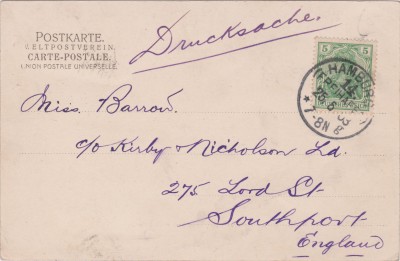 POSTKARTE.
WELTPOSTVEREIN.
CARTE-POSTALE.
UNION POSTALE UNIVERSELLE.
Drucksache.
5 5
HAMBURG
7-8N 8
Miss. Barrow.
c/o Kirby & Nicholson Ld.
275 Lord St
Southport
England